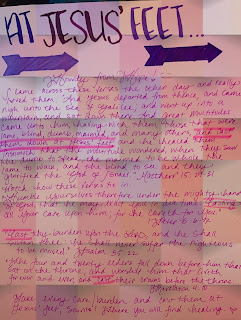 AT JESUS' FEET...
I came across these verses the other day and really
loved them. "And Jesus departed from thence, and came
nigh unto the sea of Galilee; and went up into a
mountain, and sat down there. And great multitudes
came unto him, having with them those that were
lame, blind, dumb, maimed, and many others, and cast
them down at Jesus' feet; and he healed them:
Insomuch that the multitude wondered, when they saw
the dumb to speak, the maimed to be whole, the
lame to walk, and the blind to see: and they
glorified the God of Israel." Matthew 15:29-31
"Humble yourselves therefore under the mighty hand
of God, that he may exalt you in due time: Casting
all your care upon him; for he careth for you."
"Cast thy burden upon the LORD, and he shall
sustain thee: he shall never suffer the righteous
to be moved." Psalm 55:22
"The four and twenty elders fall down before him that
sat on the throne, and worship him that liveth
for ever and ever, and cast their crowns before the throne